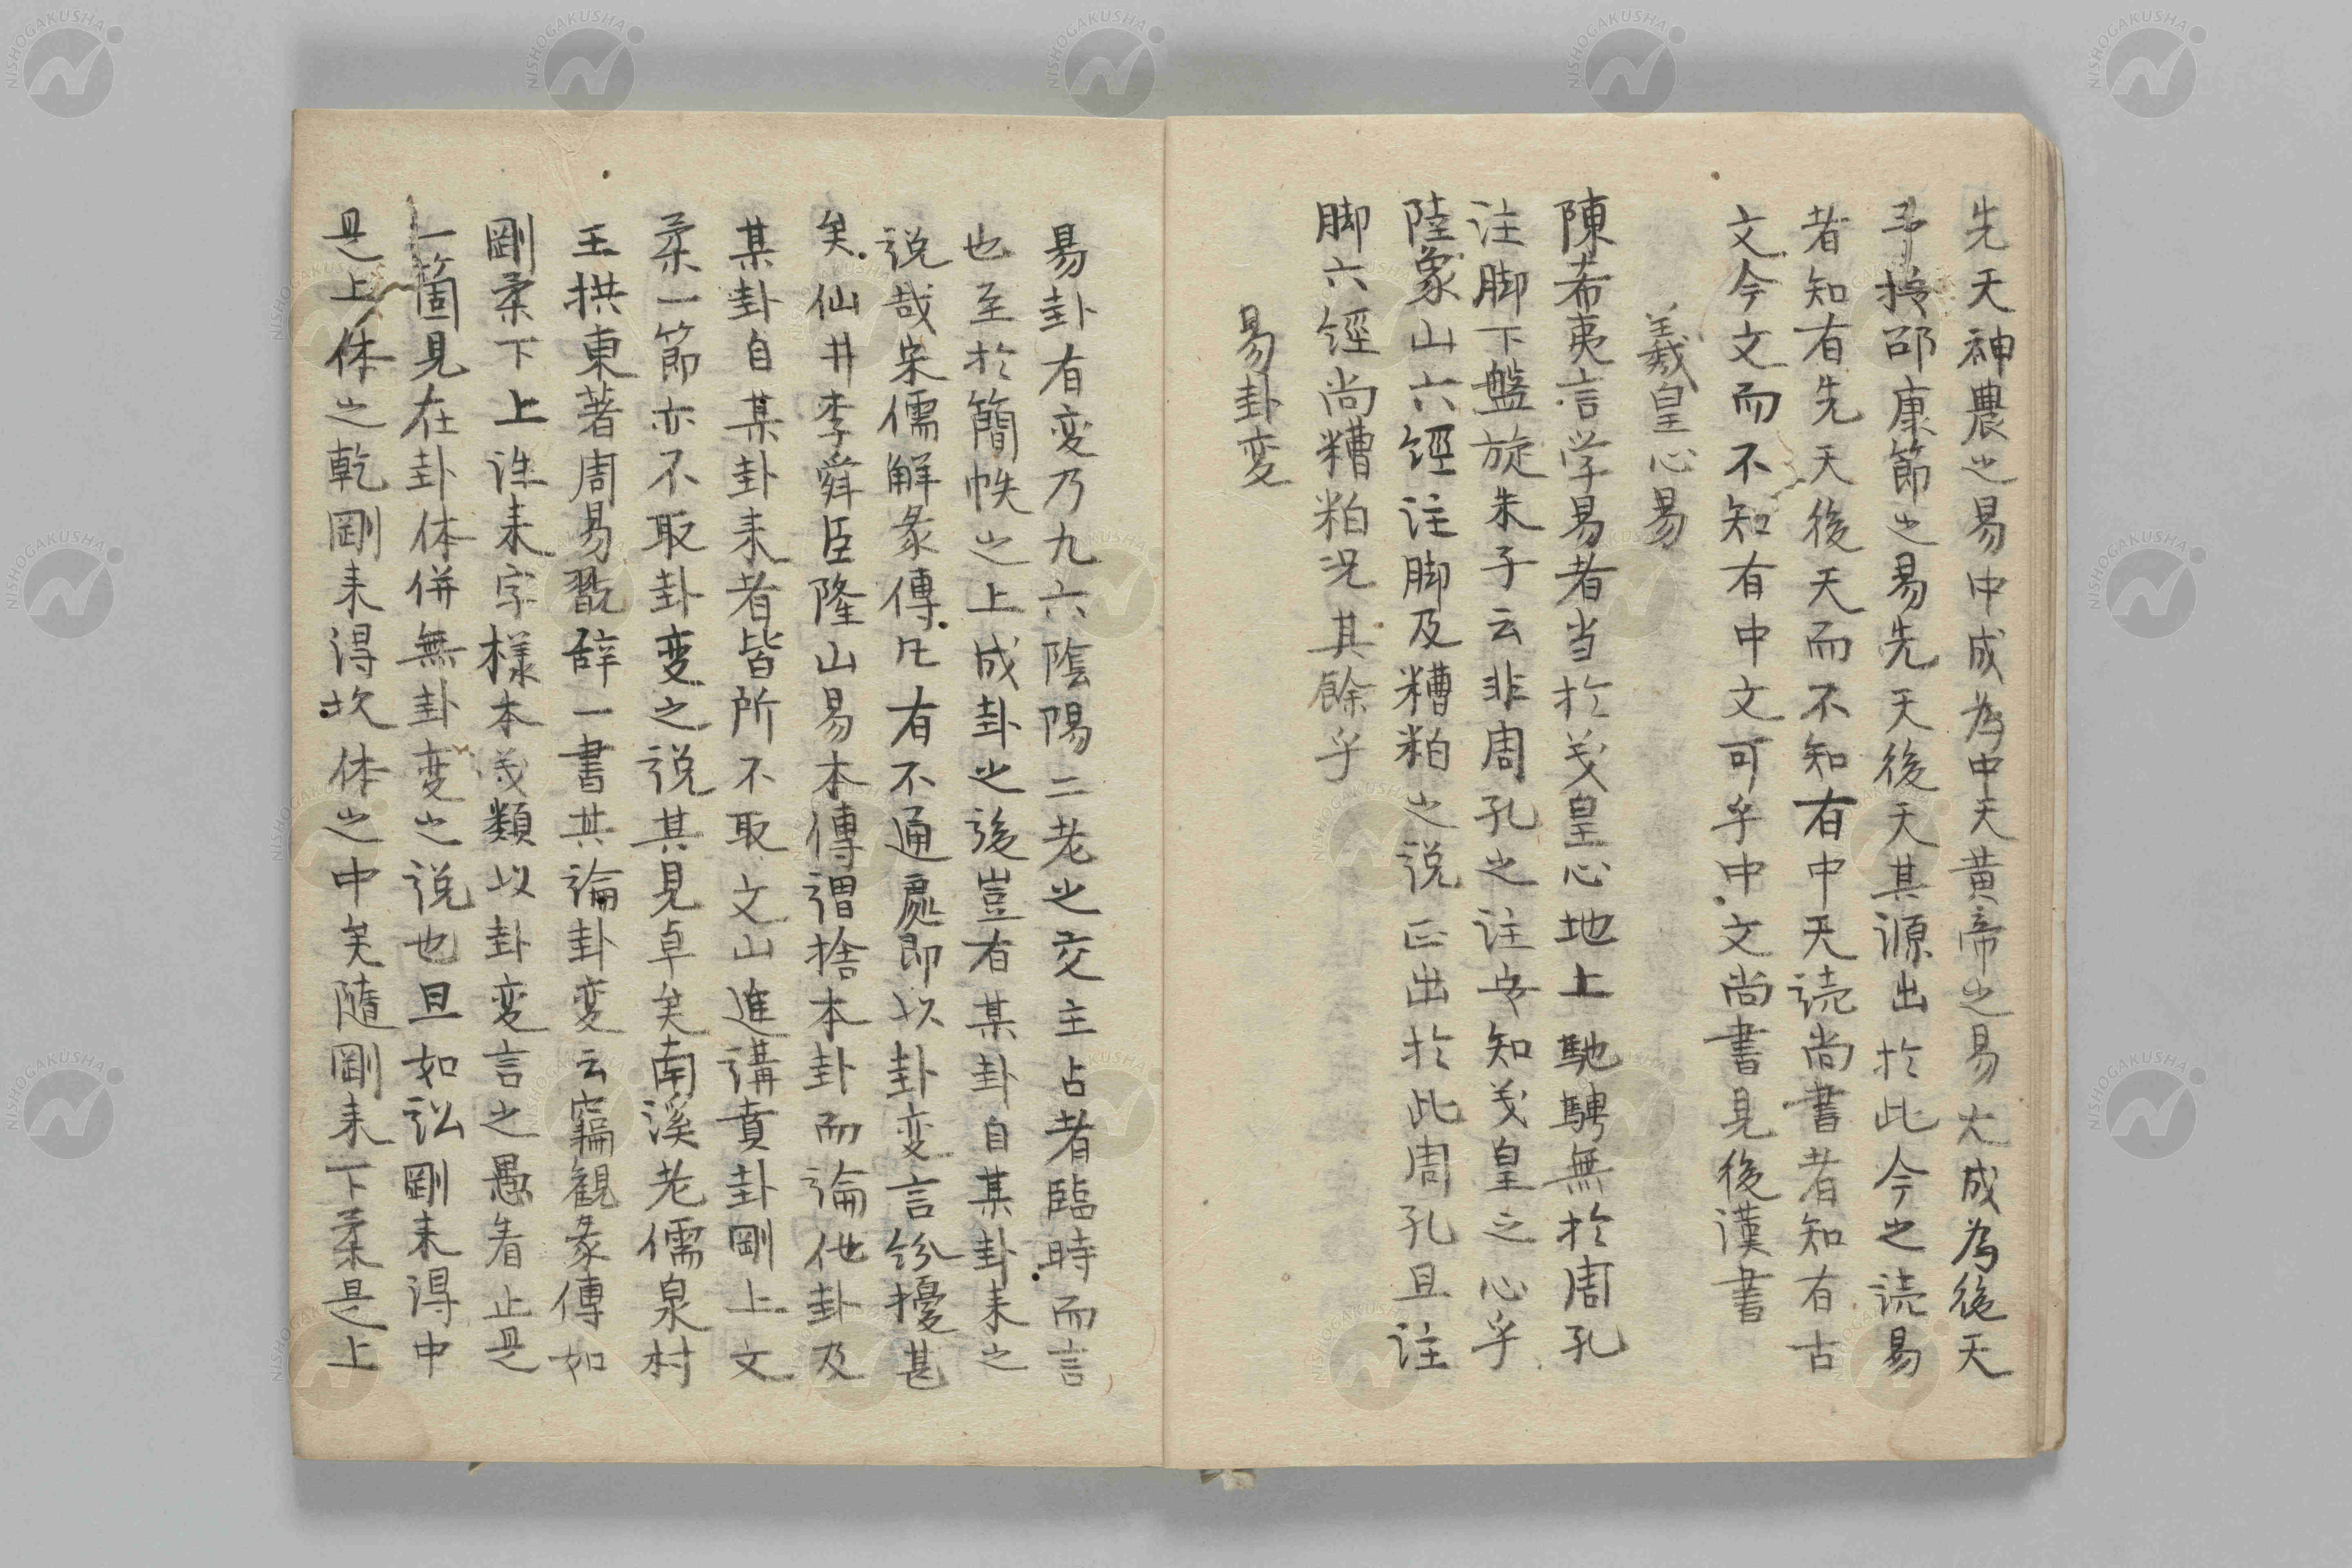 先天神農之易中成為中天黃帝之易大成為後天
予按邵康節之易先天後天其源出於此今之読易
者知有先天後天而不知有中天読尚書者知有古
文今文而不知有中文可乎中文尚書見後漢書
羲皇心易
陳希夷言学易者当於羲皇心地上馳騁無於周孔
注脚下盤旋朱子云非周孔之注安知羲皇之心乎
陸象山六經注脚及糟粕之説正出於此周孔且註
脚六経尚糟粕况其餘乎
易卦変
易卦有変乃九六陰陽二老之交主占者臨時而言
也至於簡帙之上成卦之後豈有某卦自某卦来之
説哉宋儒解彖傳凡有不通處即以卦変言紛擾甚
矣仙井李舜臣隆山易本傳謂捨本卦而論他卦及
某卦自某卦来者皆所不取文山進講賁卦剛上文
柔一節亦不取卦変之説其見卓矣南溪老儒泉村
王拱東著周易翫辞一書其論卦変云竊観彖傳如
剛柔下上往来字樣本義類以卦変言之愚看止是
一箇見在卦体併無卦変之説也且如訟剛来得中
是上体之乾剛来得坎体之中矣隨剛来下柔是上
NISHOGAKUSHA